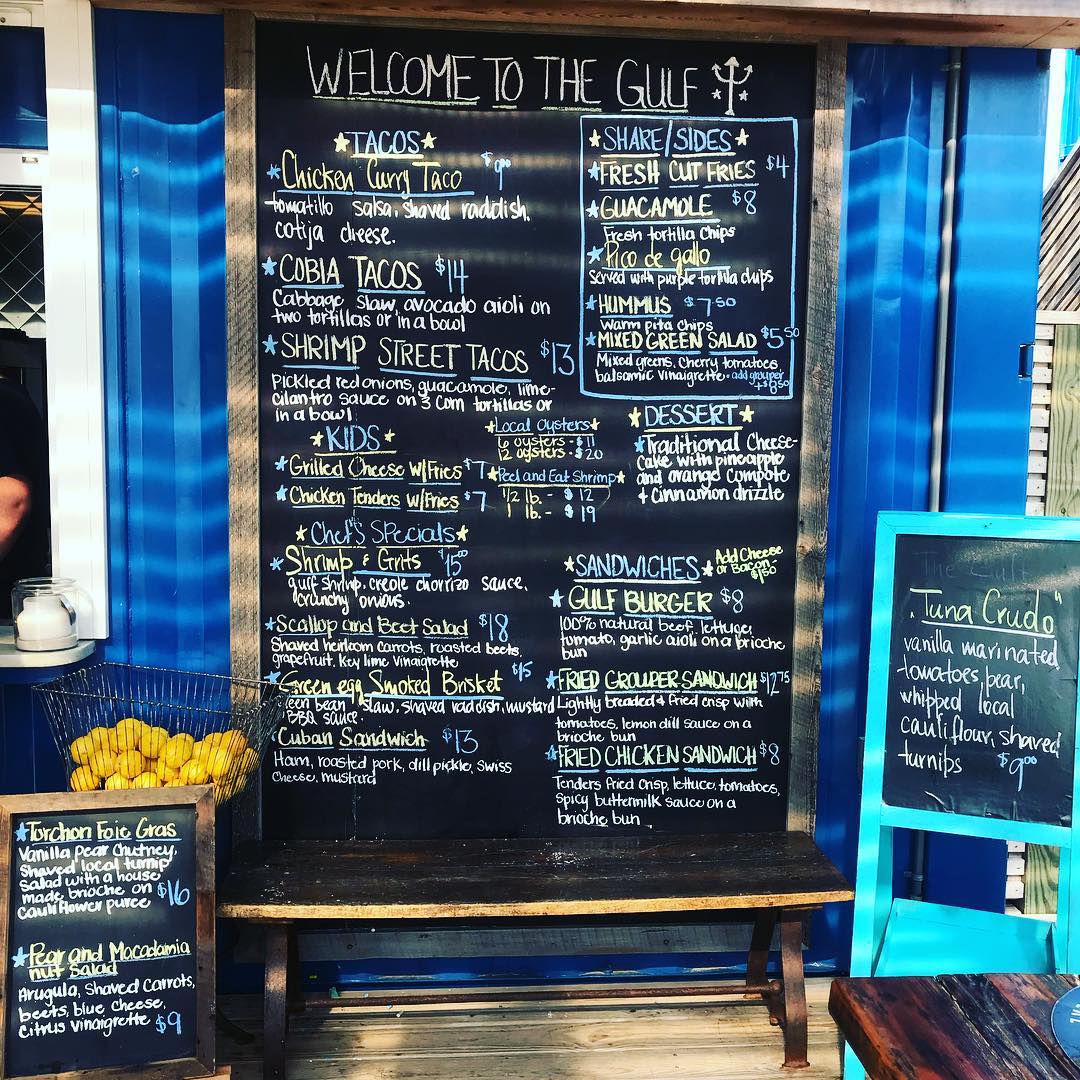 WELCOME TO THE GULF
TACOS
Chicken Curry Taco $9⁰⁰
tomatillo salsa, shaved raddish,
cotija cheese.
COBIA TACOS $14
Cabbage slaw, avocado aioli on
two tortillas or in a bowl
SHRIMP STREET TACOS $13
Pickled red onions, guacamole, lime-
cilantro sauce on 3 corn tortillas or
in a bowl
KIDS
Grilled Cheese w/Fries $7
Chicken Tenders w/Fries $7
Local Oysters
6 oysters - $11
12 oysters - $20
Peel and Eat Shrimp
1/2 lb. - $12
1 lb. - $19
Chef's Specials
Shrimp & Grits $15⁰⁰
gulf shrimp, creole chorrizo sauce,
crunchy onions.
Scallop and Beet Salad $18
Shaved heirloom carrots, roasted beets,
grapefruit, Key lime vinaigrette
Green egg Smoked Brisket $15
green bean slaw, shaved raddish, mustard
BBQ sauce.
Cuban Sandwich $13
Ham, roasted pork, dill pickle, swiss
cheese, mustard
SHARE/SIDES
FRESH CUT FRIES $4
GUACAMOLE $8
Fresh tortilla chips
Pico de gallo
served with purple tortilla chips
HUMMUS $7⁵⁰
warm pita chips
MIXED GREEN SALAD $5⁵⁰
Mixed greens, cherry tomatoes
balsamic vinaigrette · add grouper
+$8⁵⁰
DESSERT
Traditional Cheese-
cake with pineapple
and orange compote
+ cinnamon drizzle
SANDWICHES
Add Cheese
or Bacon
$1⁵⁰
GULF BURGER $8
100% natural beef, lettuce,
tomato, garlic aioli on a brioche
bun
FRIED GROUPER SANDWICH $12⁷⁵
Lightly breaded & fried crisp with
tomatoes, lemon dill sauce on a
brioche bun
FRIED CHICKEN SANDWICH $8
Tenders fried crisp, lettuce, tomatoes,
spicy buttermilk sauce on a
brioche bun
Torchon Foie Gras
Vanilla pear chutney,
shaved local turnip
salad with a house
made, brioche on $16
cauliflower puree
Pear and Macadamia
nut Salad
Arugula, Shaved Carrots,
beets, blue cheese,
Citrus vinaigrette $9
The Gulf
"Tuna Crudo"
vanilla marinated,
tomatoes, pear,
whipped local
cauliflour, shaved
turnips $9⁰⁰